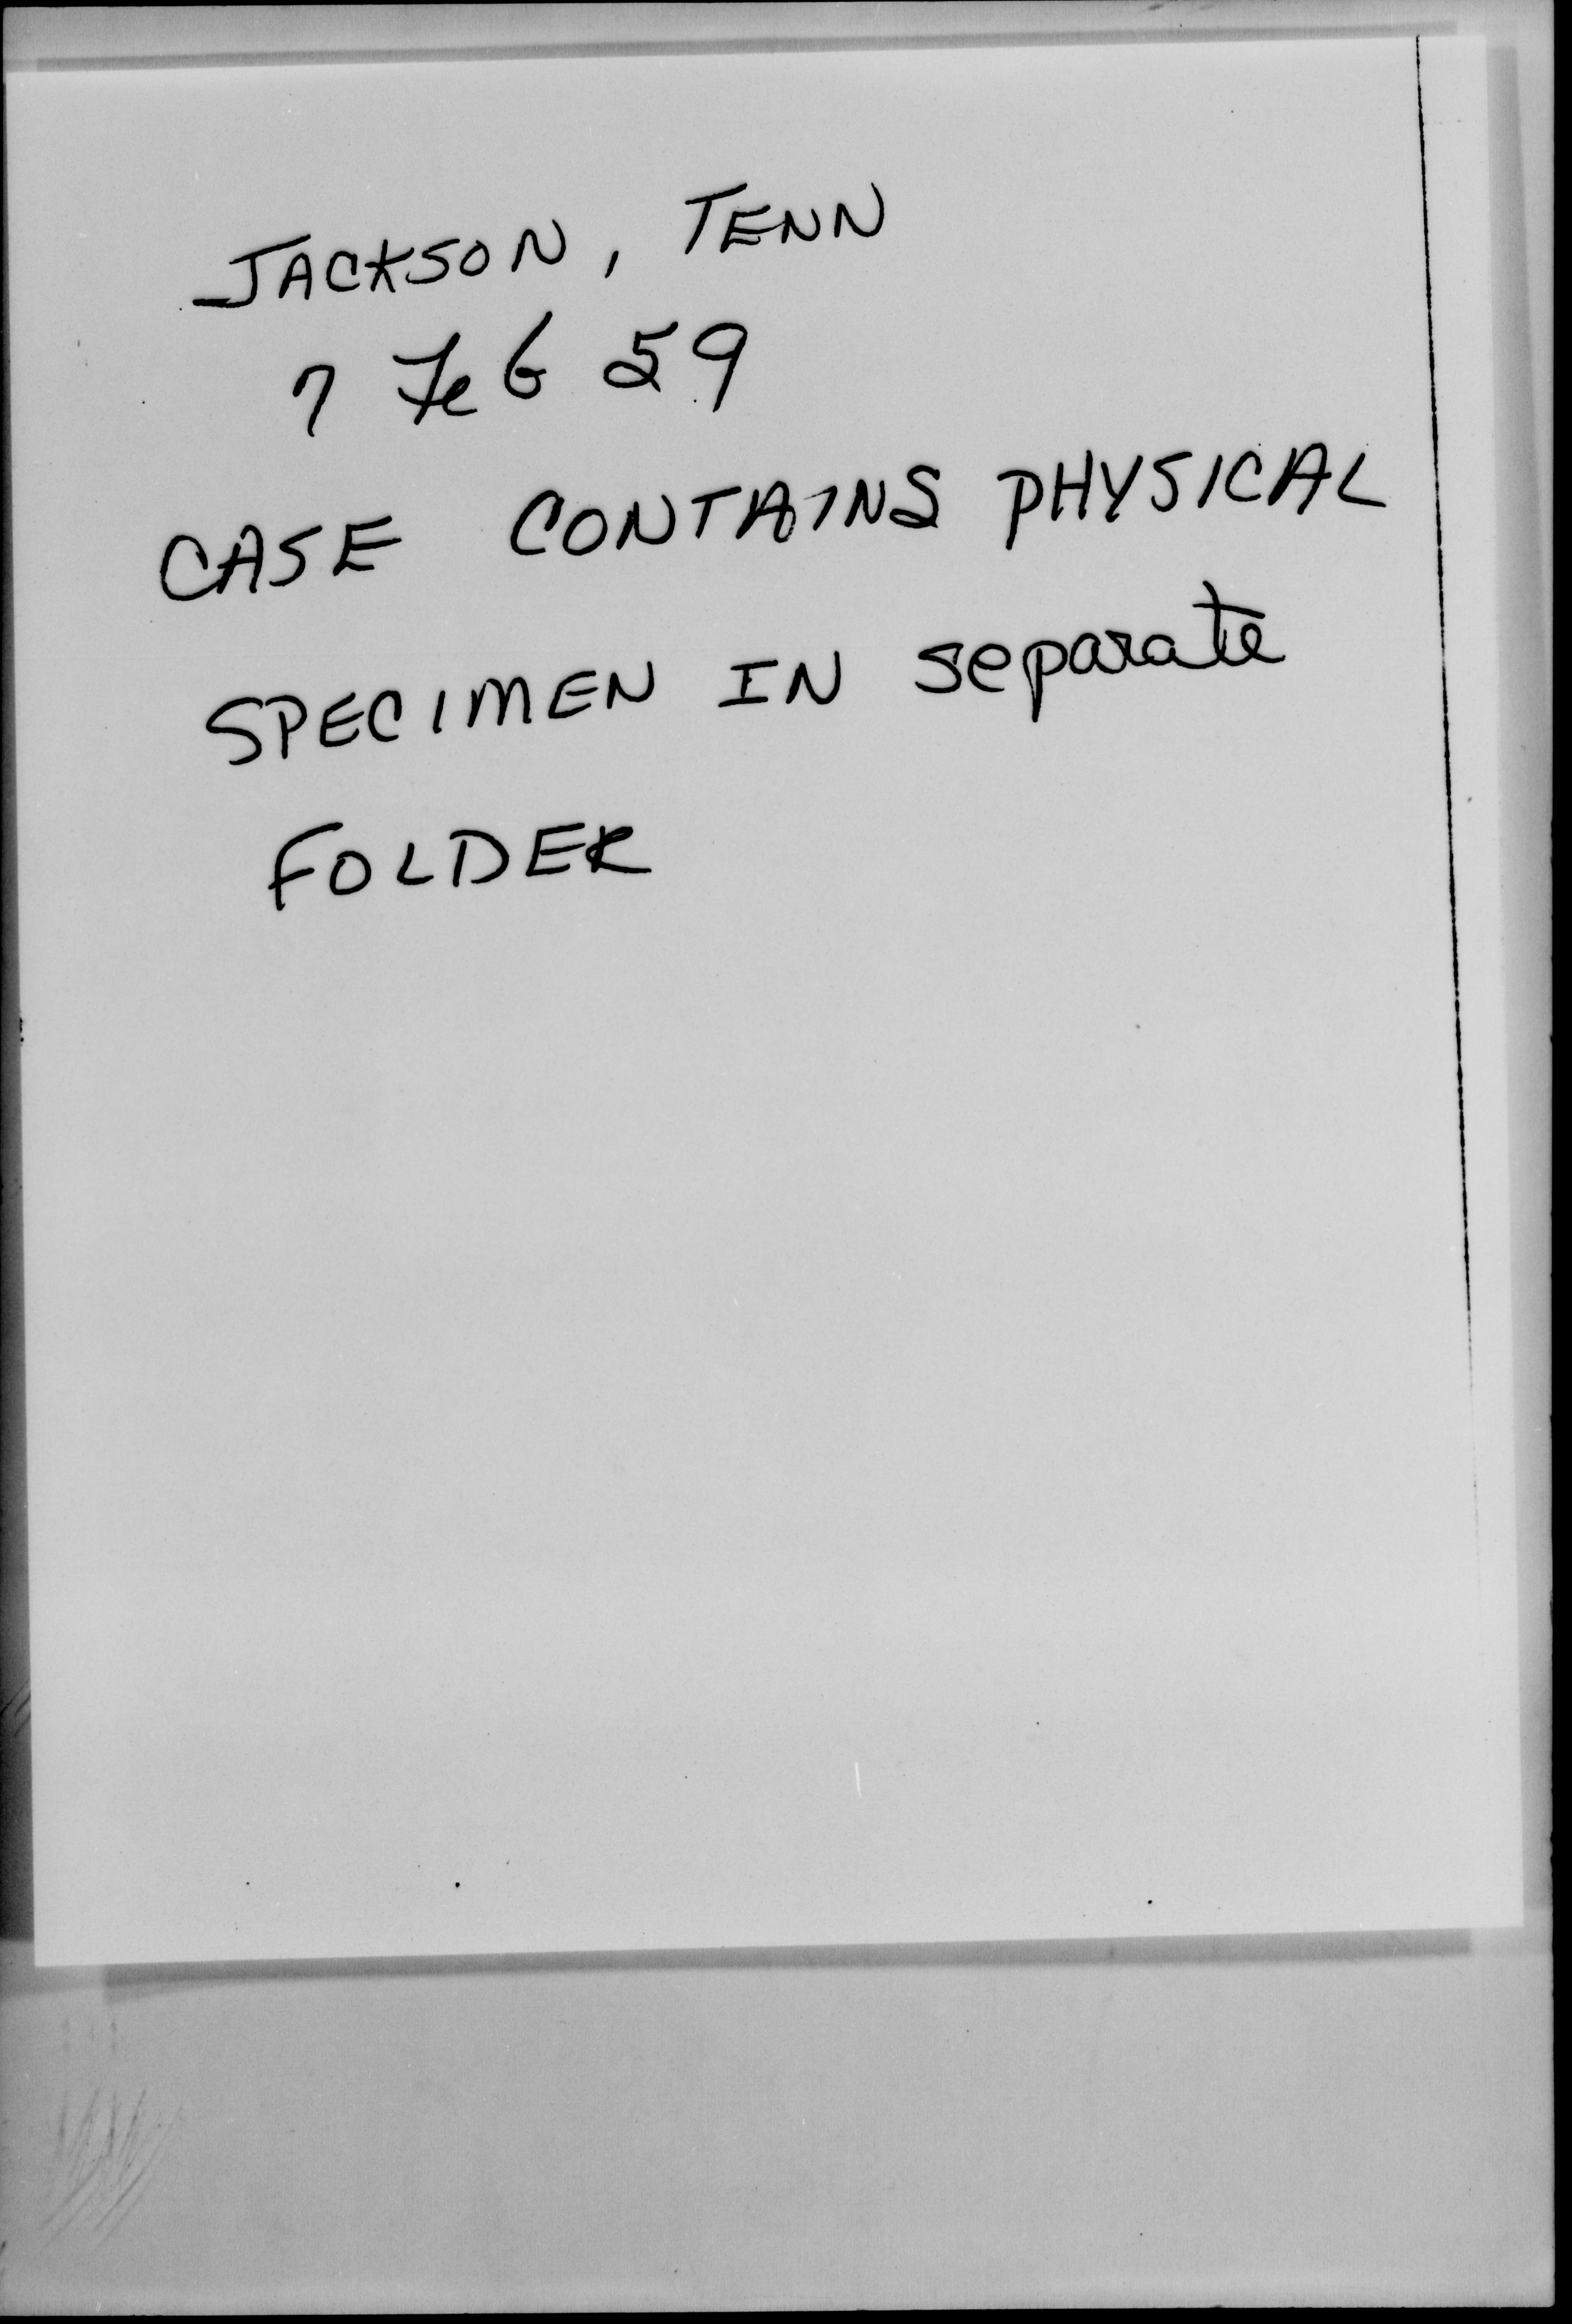 JACKSON, TENN
7 Feb 59
CASE CONTAINS PHYSICAL
SPECIMEN IN separate
FOLDER